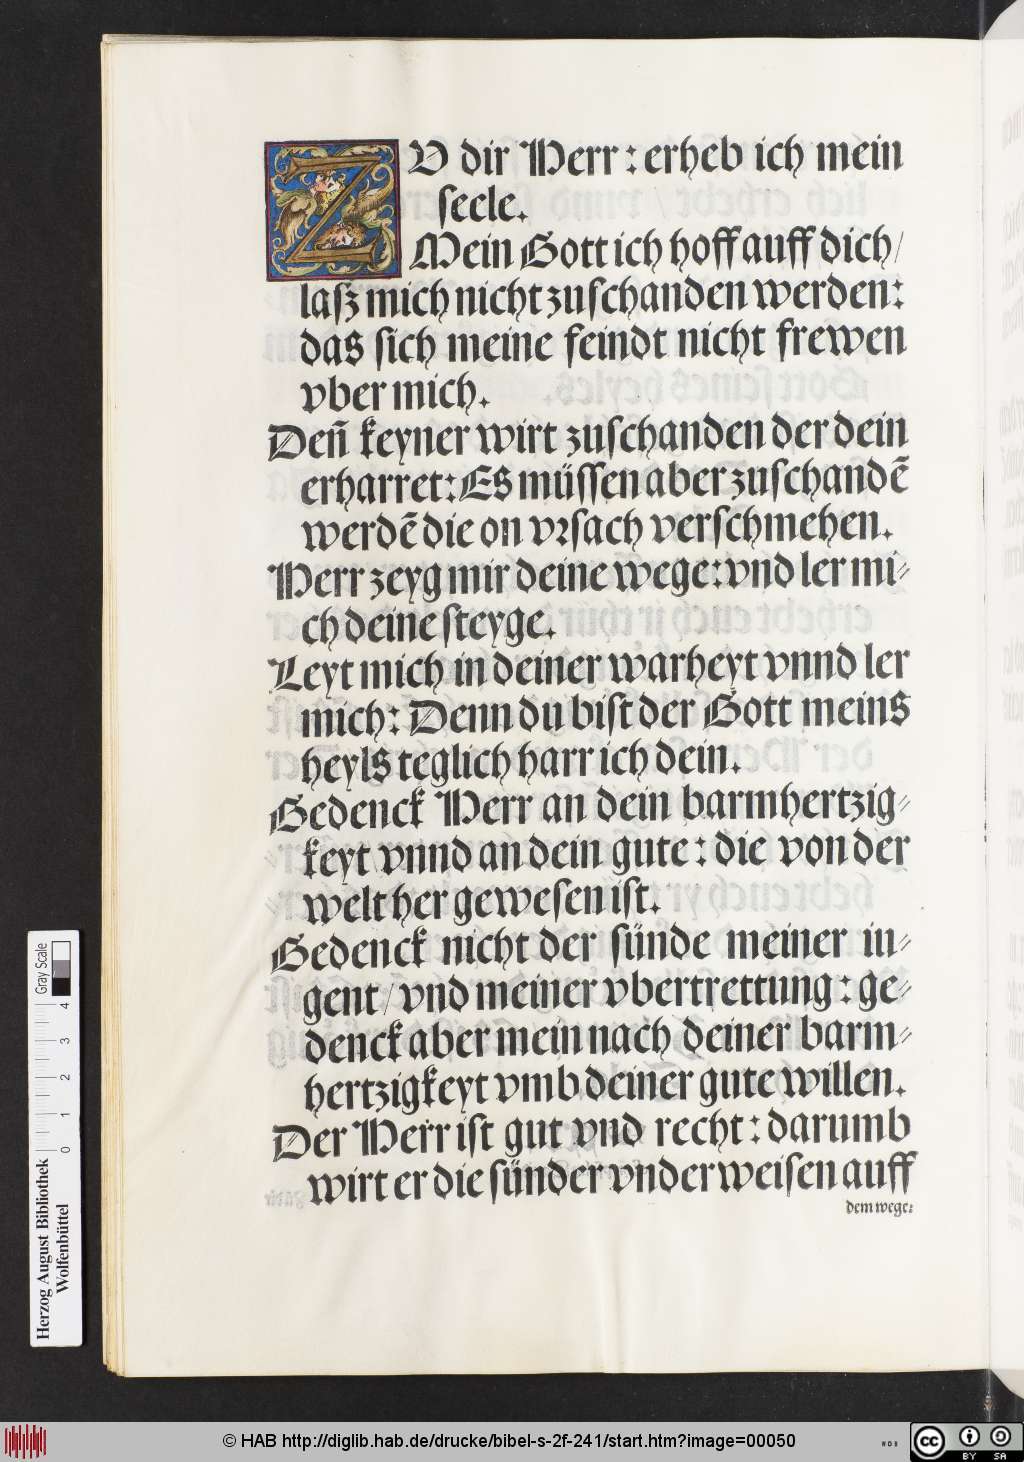 ZV dir Herr : erheb ich mein
seele.
Mein Gott ich hoff auff dich/
laſz mich nicht zuſchanden werden:
das ſich meine feindt nicht frewen
vber mich.
Den̄ keyner wirt zuſchanden der dein
erharret: Es müſſen aber zuſchandē
werdē die on vꝛſach verſchmehen.
Herr zeyg mir deine wege: vnd ler mi⸗
ch deine ſteyge.
Leyt mich in deiner warheyt vnnd ler
mich: Denn du biſt der Gott meins
heyls teglich harr ich dein.
Gedenck Herr an dein barmhertzig⸗
keyt vnnd an dein gute : die von der
welt her geweſen iſt.
Gedenck nicht der ſünde meiner iu⸗
gent/ vnd meiner vbertrettung : ge⸗
denck aber mein nach deiner barm⸗
hertzigkeyt vmb deiner gute willen.
Der Herr iſt gut vnd recht : darumb
wirt er die ſünder vnderweiſen auff
dem wege:
Herzog August Bibliothek
Wolfenbüttel
0 1 2 3 4
Gray Scale
© HAB http://diglib.hab.de/drucke/bibel-s-2f-241/start.htm?image=00050
WDB
cc BY SA